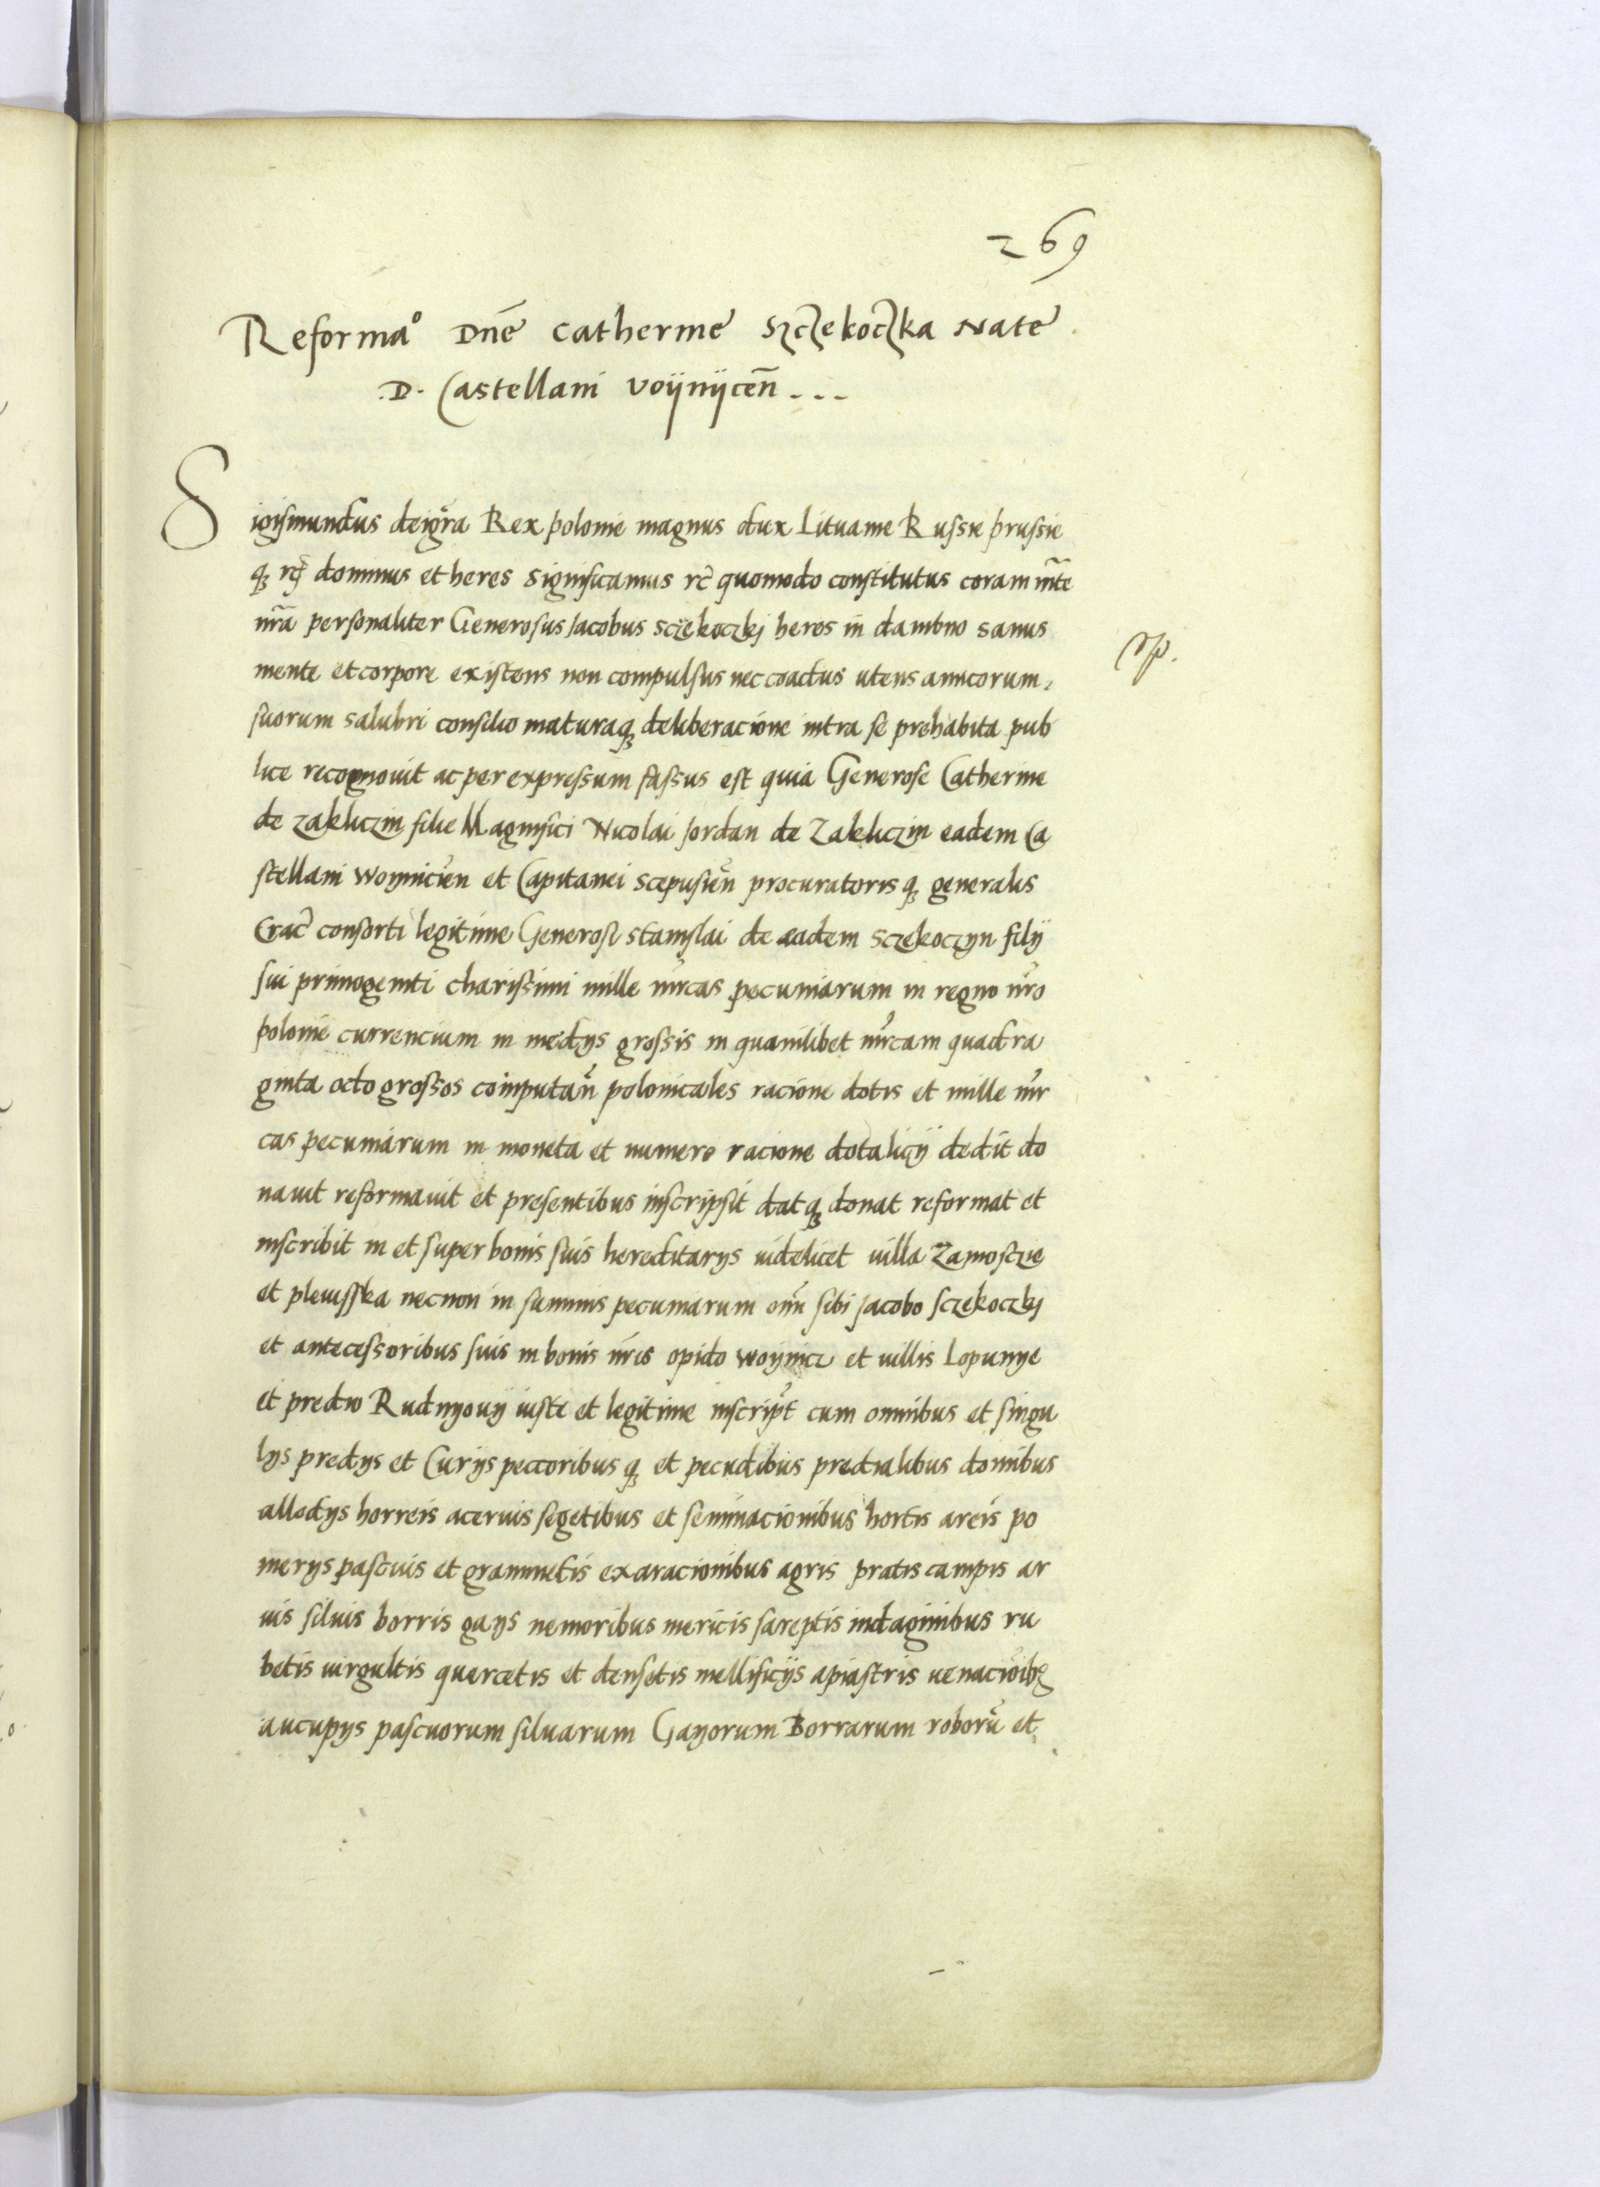 269
Reforma° Dnē Catherine Szczekoczka Nate
.D. Castellani voÿnÿceñ...
Sigismundus dei gra Rex polonie magnus dux Lituanie Russie prussie
q rc dominus et heres Significamus rc quomodo constitutus coram mte
nra personaliter Generosus Jacobus sczekoczkj heres in dambno sanus
mente et corpore existens non compulsus nec coactus utens amicorum,
suorum salubri consilio maturaq deliberacione intra se prehabita pub
lice recognouit ac per expressum fassus est quia Generose Catherine
de zakliczin filie Magnifici Nicolai Jordan de Zakliczin eadem Ca
stellani woynicien et Capitanei scepusien procuratoris q generalis
Crac consorti legitime Generosi stanislai de eadem sczekoczyn filÿ
sui primogeniti charissimi mille mrcas pecuniarum in regno nro
polonie currencium in medÿs grossis in quamlibet mrcam quadra
ginta octo grossos computan polonicales racione dotis et mille mr
cas pecuniarum in moneta et numero racione dotalicÿ dedit do
nauit reformauit et presentibus inscripsit datq donat reformat et
inscribit in et super bonis suis hereditarÿs uidelicet uilla Zamosczie
et pleuisska necnon in summis pecuniarum omn sibi Jacobo sczekoczkj
et antecessoribus suis in bonis nris opido woynicz et uillis Lopunye
et predio Rudnyouÿ iuste et legitime inscript cum omnibus et singu
lÿs predÿs et Curÿs peccoribus q et pecudibus predialibus domibus
allodÿs horreis aceruis segetibus et seminacionibus hortis areis po
merÿs pascuis et graminetis exaracionibus agris pratis campis ar
uis siluis borris gaÿs nemoribus mericis sareptis indaginibus ru
betis uirgultis quercetis et densetis mellificÿs apiastris uenacioib9
aucupÿs pascuorum siluarum Gayorum Borrarum roborū et